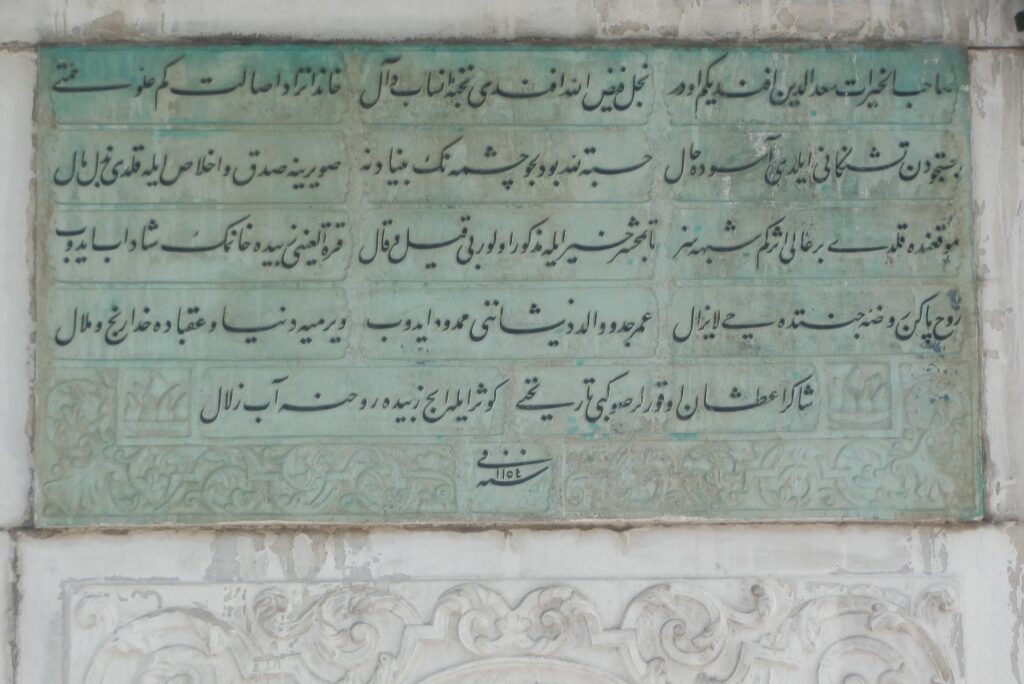 صاحب الخیرات سعد الدین افندیکم اودر نجل فیض الله افندی نخبۀ انساب و آل خاندانزاد اصالت کم علو همتی
جستجودن تشنکانی ایلدی آسوده حال حسبة لله بو دلجو چشمه نك بنیادنه صویرینه صدق و اخلاص ایله قلدی بذل مال
موقعنده قلدی بر عالی اثر کم شبهه سز تا بمحشر خیر ایله مذکور اولور بی قیل و قال قرة العینی زبیده خانمك شاداب ایدوب
روح پاکن روضۀ جنتده حی لایزال عمر جد و والد ذیشاننی ممدود ایدوب ویرمیه دنیا و عقباده خدا رنج و ملال
شاکرا عطشان اوقورلر صو کبی تاریخنی کوثر ایله ایچ زبیده روحنه آب زلال
فی سنه ١١٥٤